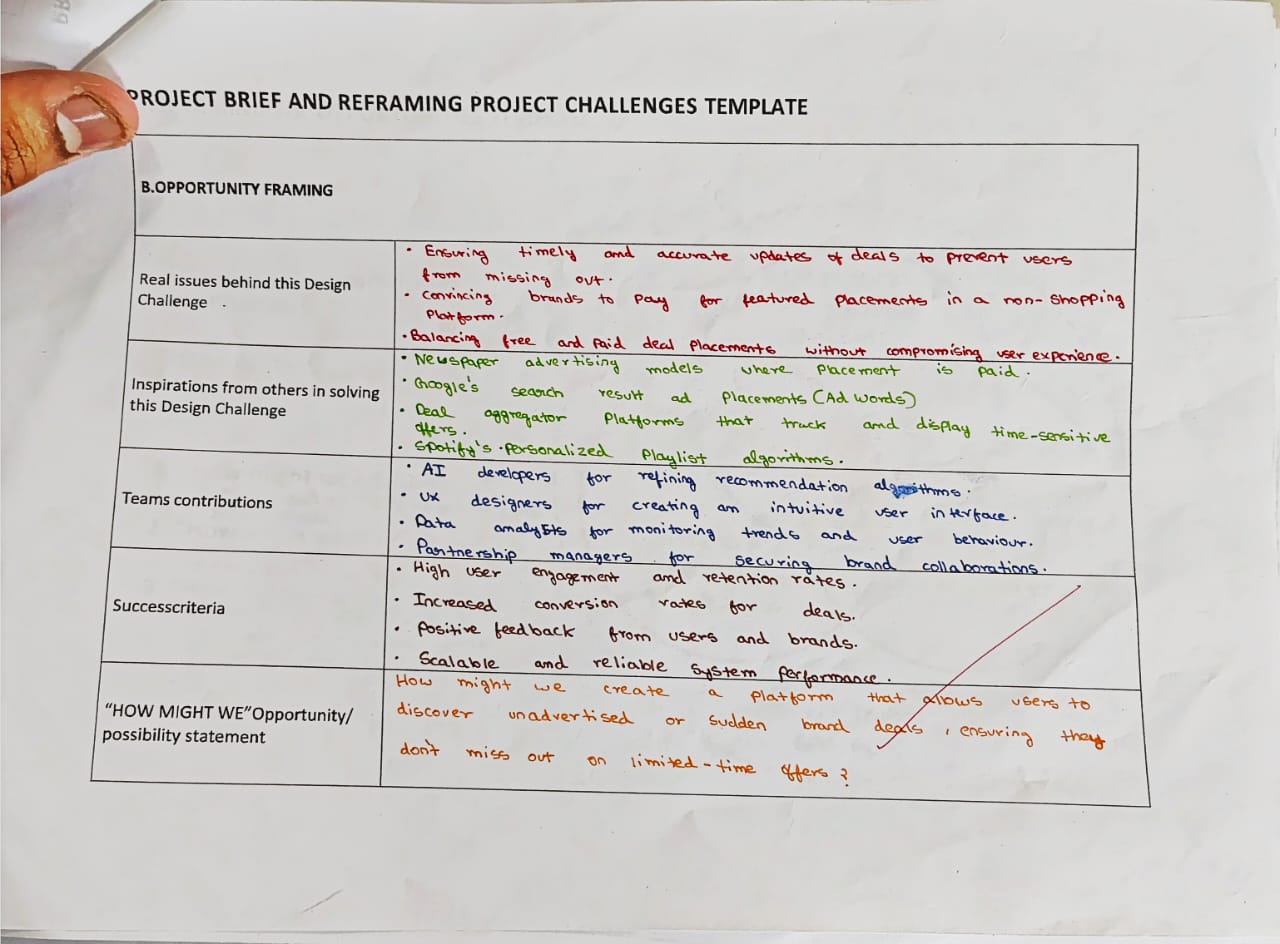 PROJECT BRIEF AND REFRAMING PROJECT CHALLENGES TEMPLATE
B.OPPORTUNITY FRAMING
Real issues behind this Design
Challenge
• Ensuring timely and accurate updates of deals to prevent users
from missing out.
• Convincing brands to pay for featured placements in a non-shopping
Platform.
• Balancing free and paid deal placements without compromising user experience.
Inspirations from others in solving
this Design Challenge
• Newspaper advertising models where placement is paid.
• Google's search result ad placements (Ad words)
• Deal aggregator Platforms that track and display time-sensitive
offers.
• Spotify's personalized playlist algorithms.
Teams contributions
• AI developers for refining recommendation algorithms.
• UX designers for creating an intuitive user interface.
• Data analysts for monitoring trends and user behaviour.
• Partnership managers for securing brand collaborations.
Successcriteria
• High user engagement and retention rates.
• Increased conversion rates for deals.
• Positive feedback from users and brands.
• Scalable and reliable system performance.
"HOW MIGHT WE"Opportunity/
possibility statement
How might we create a platform that allows users to
discover unadvertised or sudden brand deals, ensuring they
don't miss out on limited-time offers?